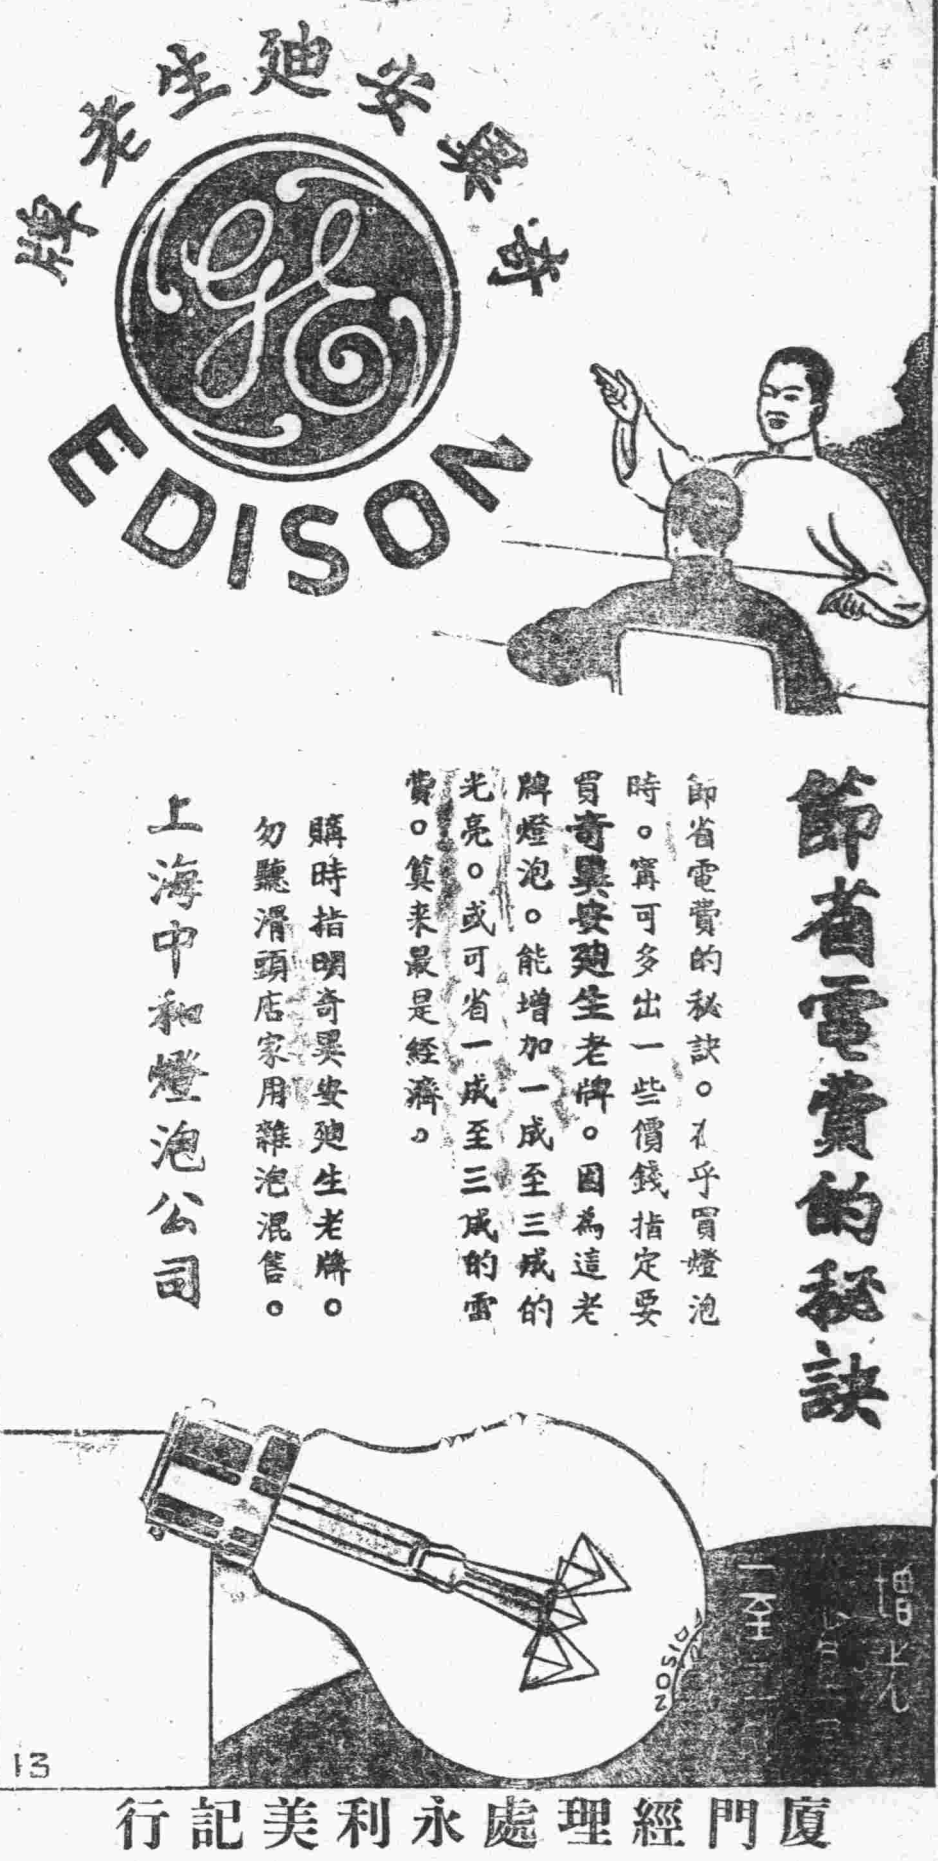 奇異安廸生老牌
GE
EDISON
節省電費的秘訣
節省電費的秘訣。在乎買燈泡
時。寗可多出一些價錢指定要
買奇異安廸生老牌。因為這老
牌燈泡。能增加一成至三成的
光亮。或可省一成至三成的電
費。算来最是経濟。
購時指明奇異安廸生老牌。
勿聽滑頭店家用雜泡混售。
上海中和燈泡公司
增光
省電
一至三
EDISON
13
廈門經理處永利美記行